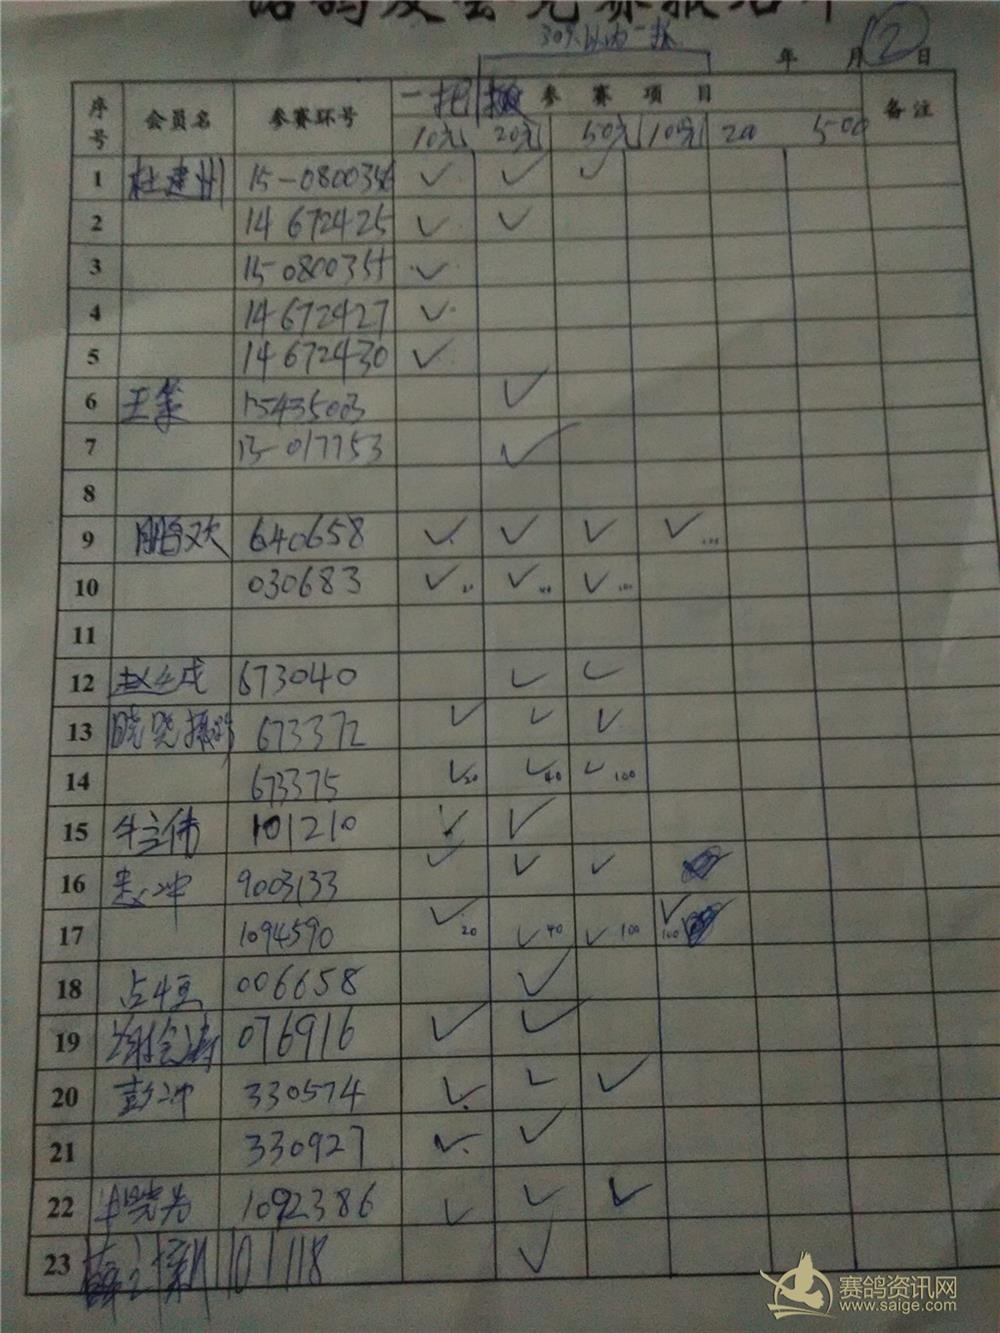 30%以内一投
年 月 2 日
序号 会员名 参赛环号 一把 参 赛 项 目 备注
10元 20元 50元 100元 200 500
1 杜建州 15-0800356 ✓ ✓ ✓
2 14 672425 ✓ ✓
3 15-0800355 ✓
4 14672427 ✓
5 14672430 ✓
6 王策 ✓
7 13-017753 ✓
8
9 欢 640658 ✓ ✓ ✓ ✓
10 030683 ✓ 20 ✓ 40 ✓ 100
11
12 赵成 673040 ✓ ✓
13 晓晓 673372 ✓ ✓ ✓
14 673375 ✓20 ✓40 ✓100
15 牛立伟 101210 ✓ ✓
16 冲 9003133 ✓ ✓ ✓
17 1094590 ✓20 ✓40 ✓100 ✓100
18 006658 ✓
19 谢会涛 076916 ✓ ✓
20 彭冲 330574 ✓ ✓ ✓
21 330927 ✓ ✓
22 晓光 1092386 ✓ ✓ ✓
23 101118 ✓
赛鸽资讯网
www.saige.com